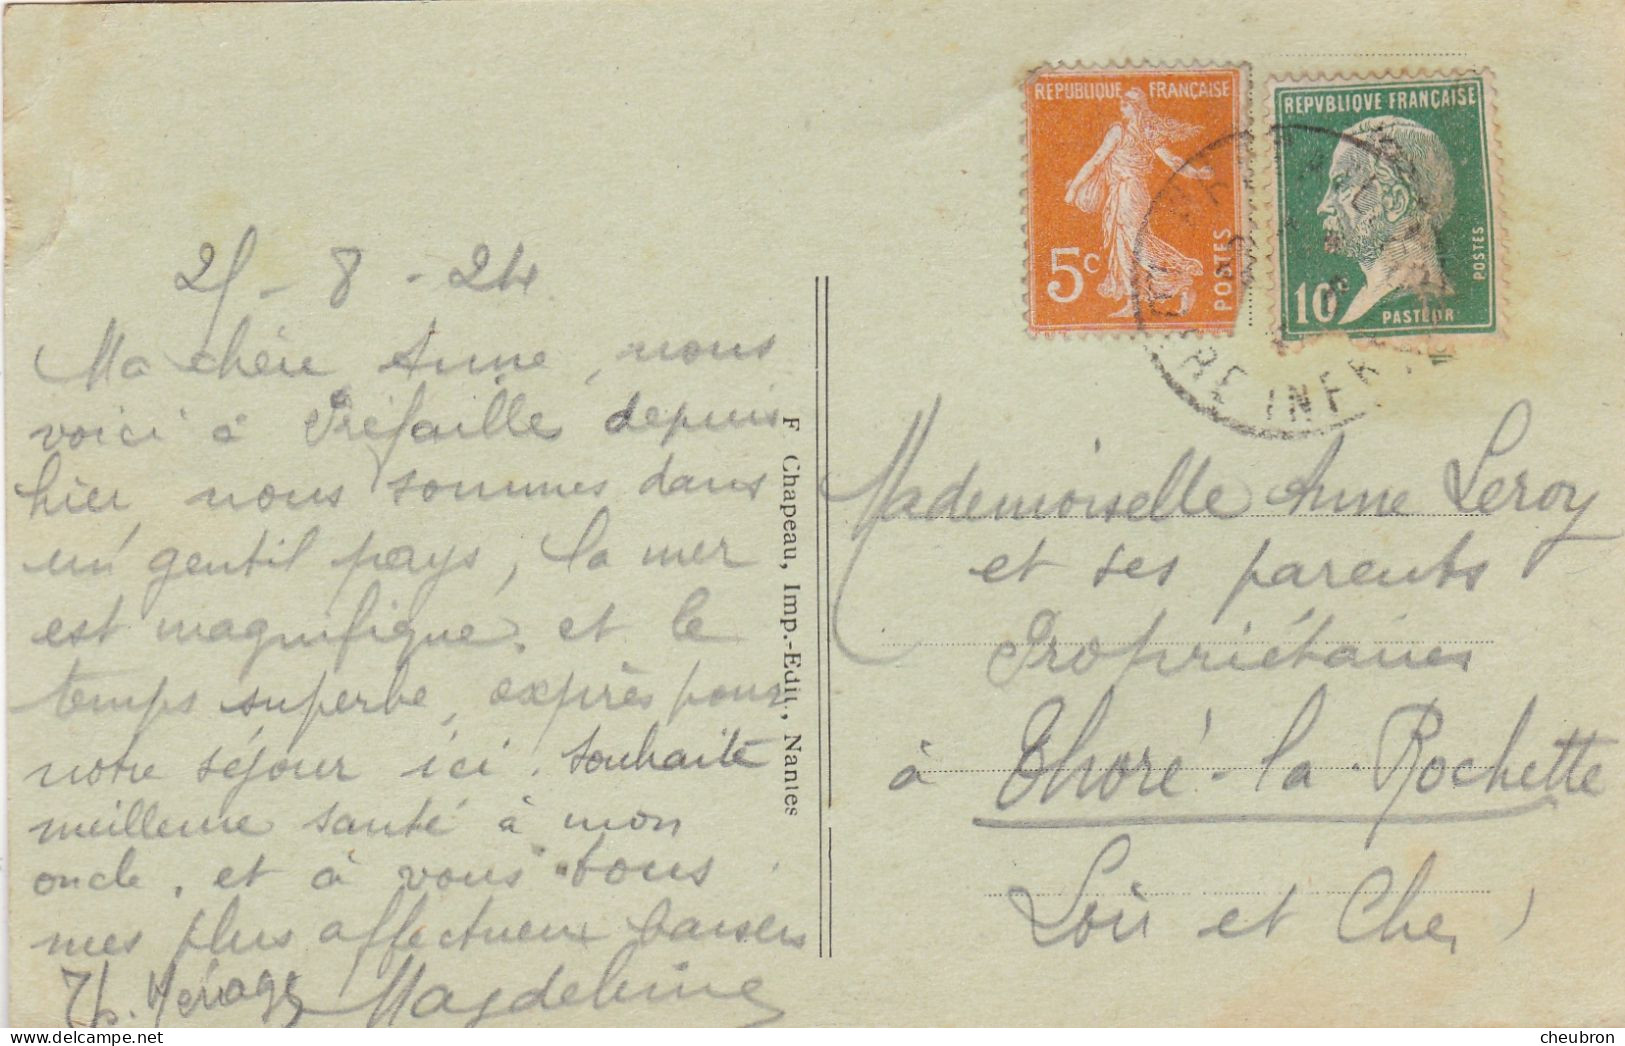 25 - 8 - 24
Ma chère Anne, nous
voici à Préfaille depuis
hier, nous sommes dans
un gentil pays, la mer
est magnifique, et le
temps superbe, exprès pour
notre séjour ici. Souhaite
meilleure santé à mon
oncle, et à vous tous
mes plus affectueux baisers
Magdeleine
F. Chapeau, Imp.-Edit., Nantes
REPUBLIQUE FRANÇAISE
5c
POSTES
REPVBLIQVE FRANÇAISE
10
POSTES
PASTEUR
LOIRE INFRE
Mademoiselle Anne Leroy
et ses parents
Propriétaires
à Thoré-la-Rochette
Loir et Cher
delcampe.net
cheubron